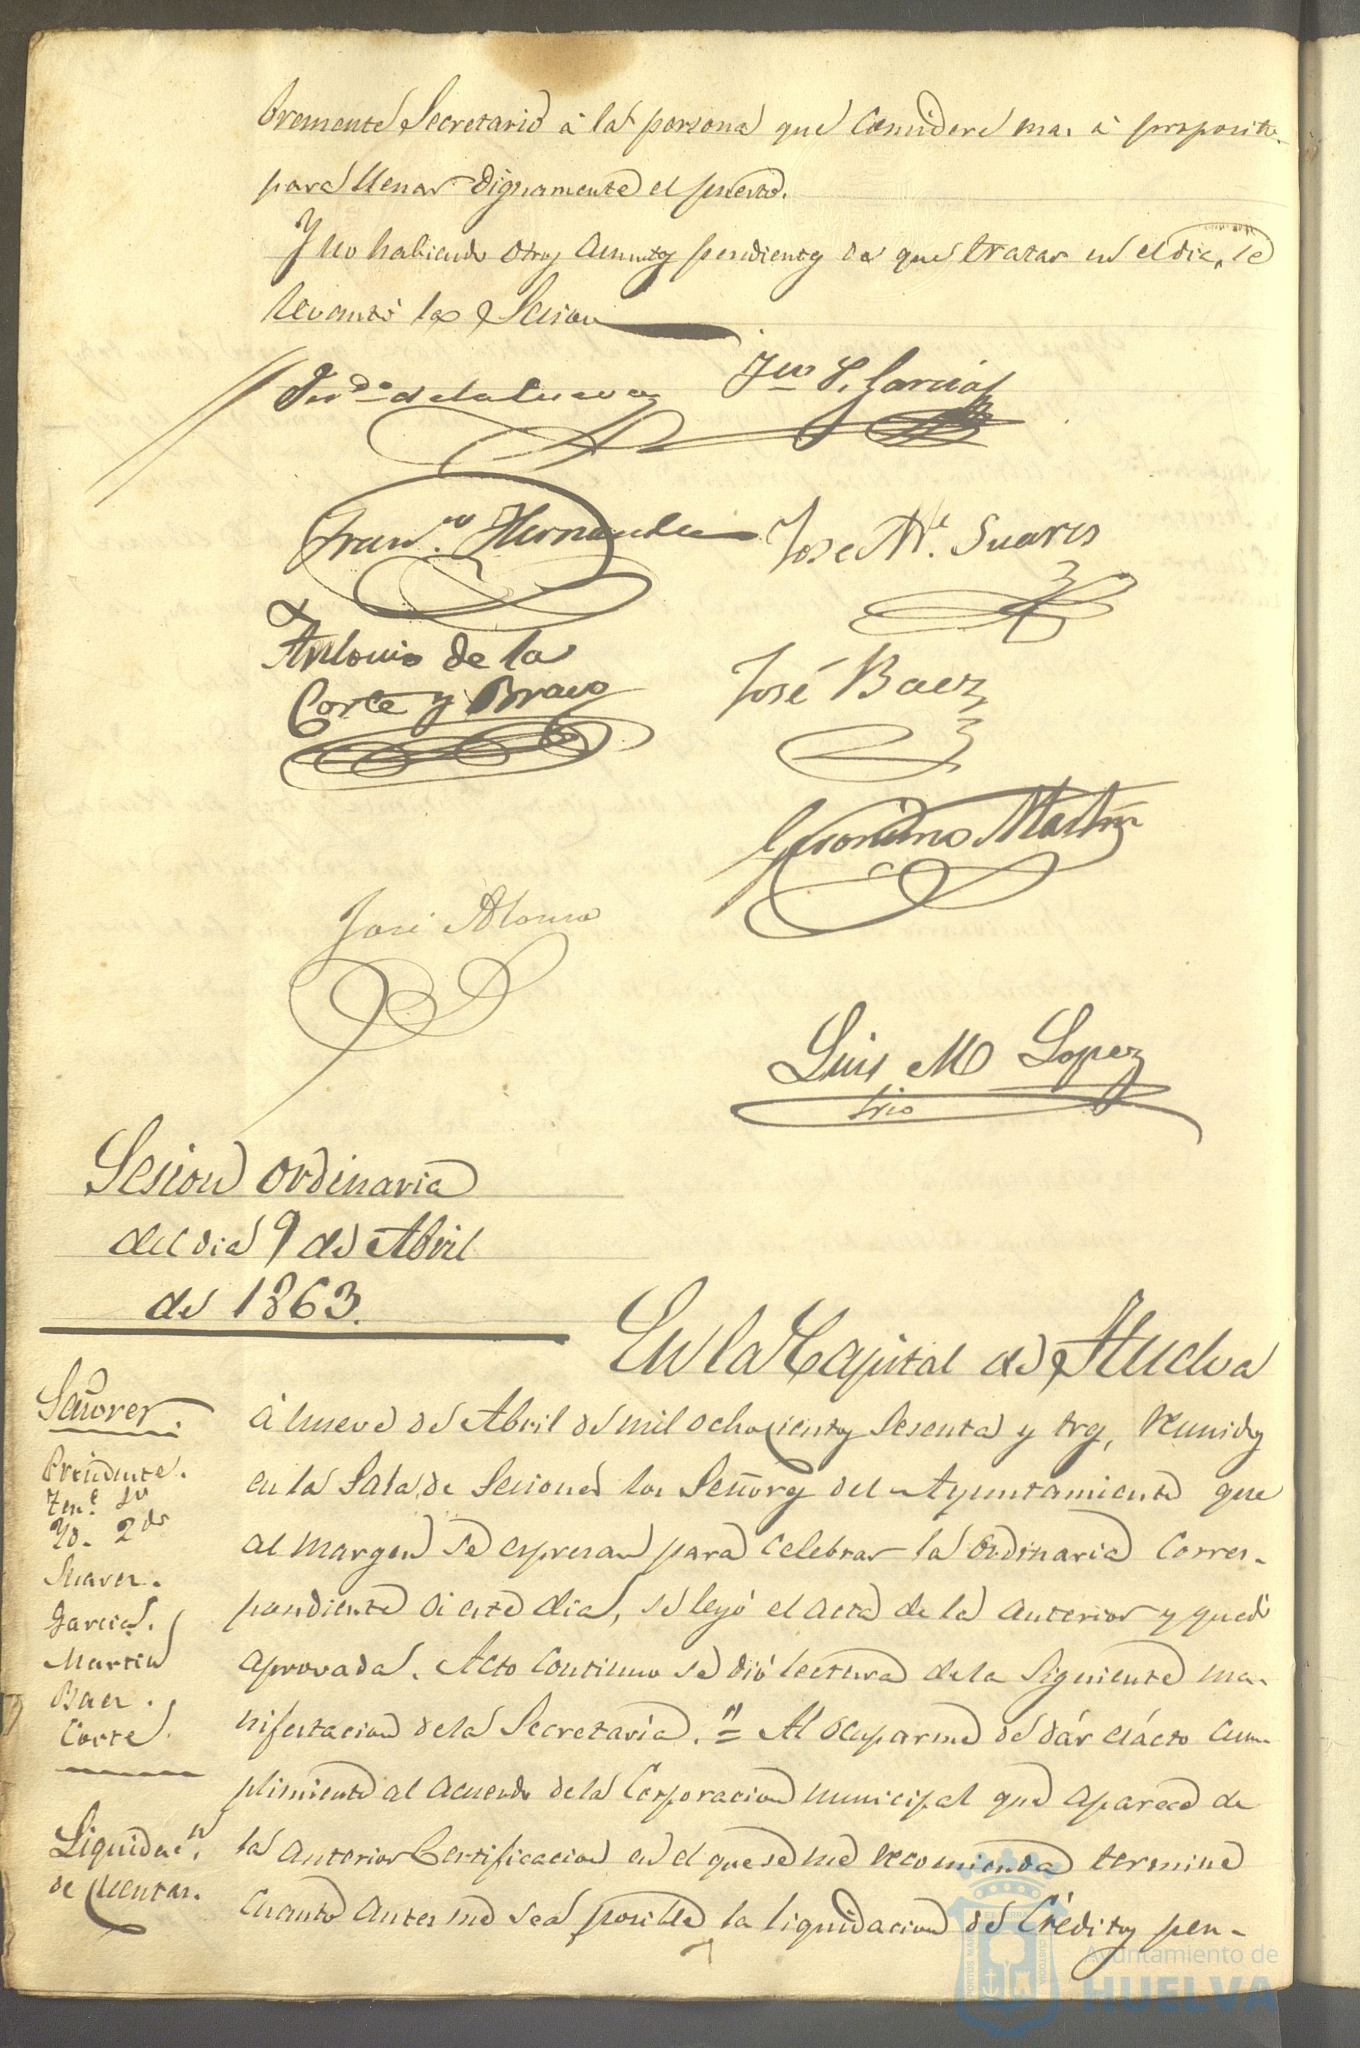 bremente Secretario á la persona que considere mas á proposito
para llenar dignamente el puesto.
Y no habiendo otros asuntos pendientes de que tratar en el dia, se
levantó la Sesion
Fern.do de la Cueva
Jn. P. Garcia
Fran.co Hernandez
Jose M.a Suares
Antonio de la
Corte y Bravo
José Baez
Geronimo Martin
José Alonso
Luis M Lopez
Srio
Sesion ordinaria
del dia 9 de Abril
de 1863.
En la Capital de Huelva
Señores.
Presidente.
Ten.e 1o
Yd. 2do
Suarez.
Garcia.
Martin
Baez.
Corte.
Liquidac.n
de cuentas.
á nueve de Abril de mil ochocientos sesenta y tres, reunidos
en la Sala de Sesiones los Señores del Ayuntamiento que
al margen se espresan para celebrar la ordinaria corres-
pondiente di este dia, se leyó el acta de la anterior y quedó
aprovada. Acto continuo se dió lectura de la siguiente ma-
nifestacion de la Secretaría. "= Al ocuparme de dár esácto cum-
plimiento al acuerdo de la Corporacion municipal que aparece de
la anterior Certificacion en el que se me recomienda termine
cuanto antes me sea posible la liquidacion de Créditos pen-
Ayuntamiento de
HUELVA